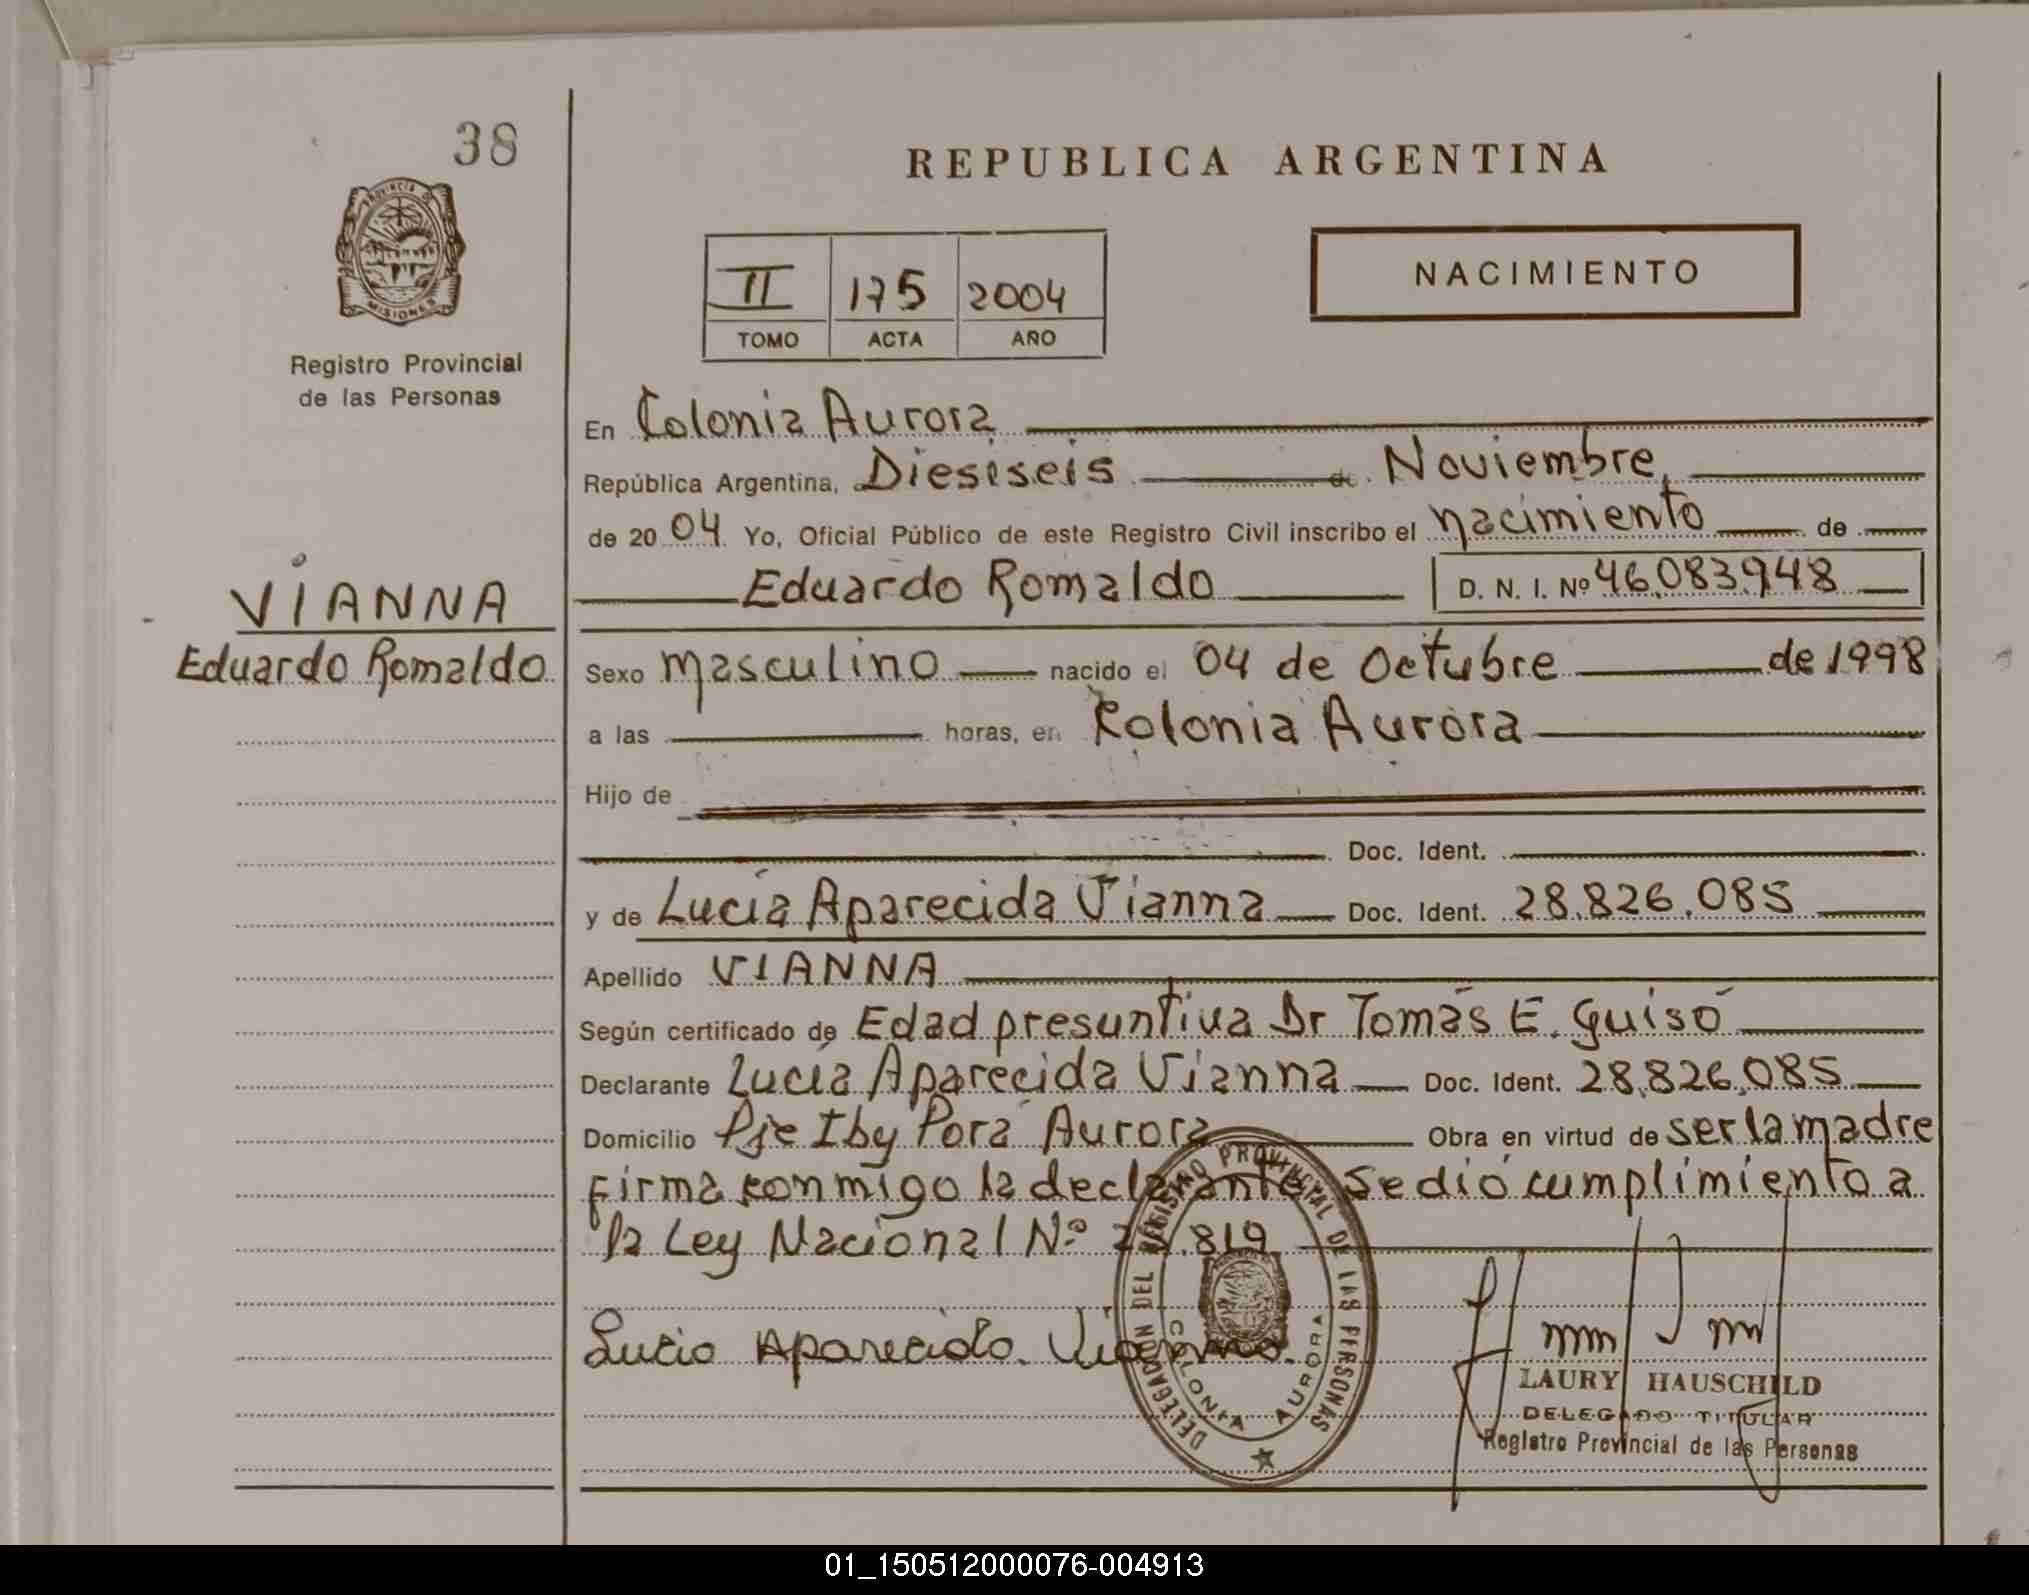 38
PROVINCIA DE
MISIONES
Registro Provincial
de las Personas
VIANNA
Eduardo Romaldo
REPUBLICA ARGENTINA
II 175 2004
TOMO ACTA AÑO
NACIMIENTO
En Colonia Aurora
República Argentina, Diesiseis de Noviembre
de 2004 Yo, Oficial Público de este Registro Civil inscribo el nacimiento de
Eduardo Romaldo D. N. I. Nº 46.083.948
Sexo masculino nacido el 04 de Octubre de 1998
a las horas, en Colonia Aurora
Hijo de
Doc. Ident.
y de Lucía Aparecida Vianna Doc. Ident. 28.826.085
Apellido VIANNA
Según certificado de Edad presuntiva Dr Tomás E. Guisó
Declarante Lucía Aparecida Vianna Doc. Ident. 28.826.085
Domicilio Pje Iby Porá Aurora Obra en virtud de ser la madre
firma conmigo la declarante Se dió cumplimiento a
la Ley Nacional Nº .819
Lucia Aparecida Vianna
DELEGACION DEL REGISTRO PROVINCIAL DE LAS PERSONAS
COLONIA AURORA
LAURY HAUSCHILD
DELEGADO TITULAR
Registro Provincial de las Personas
01_150512000076-004913